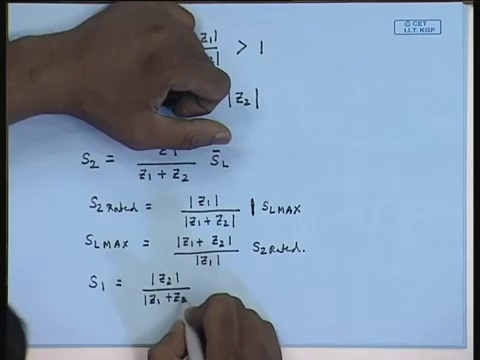 © CET
I.I.T. KGP
|Z1| > 1
|Z2|
S2 = Z1 / (Z1 + Z2) S̄L
S2 Rated = |Z1| / |Z1 + Z2| | SL MAX
SL MAX = |Z1 + Z2| / |Z1| S2 Rated.
S1 = |Z2| / |Z1 + Z2